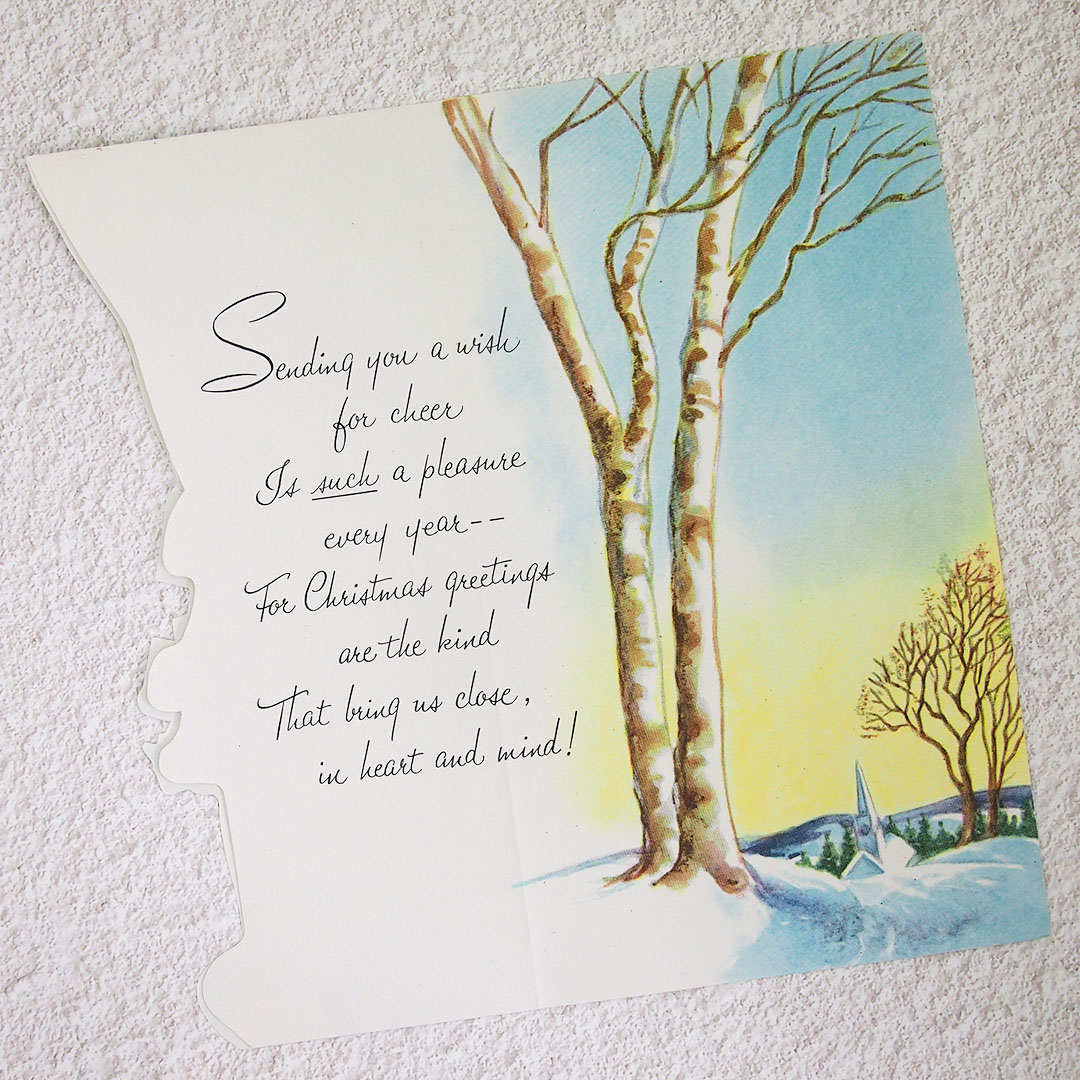 Sending you a wish
for cheer
Is such a pleasure
every year--
For Christmas greetings
are the kind
That bring us close,
in heart and mind!